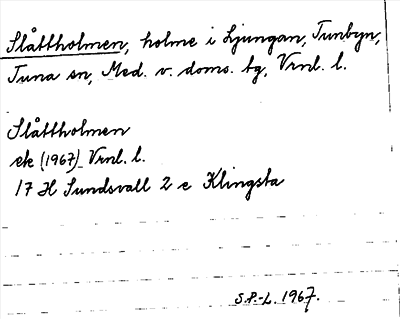 Slåttholmen, holme i Ljungan, Tunbyn,
Tuna sn, Med. v. doms. tg, Vrnl. l.
Slåttholmen
ek (1967) Vrnl. l.
17 H Sundsvall 2 e Klingsta
S.P.-L. 1967.